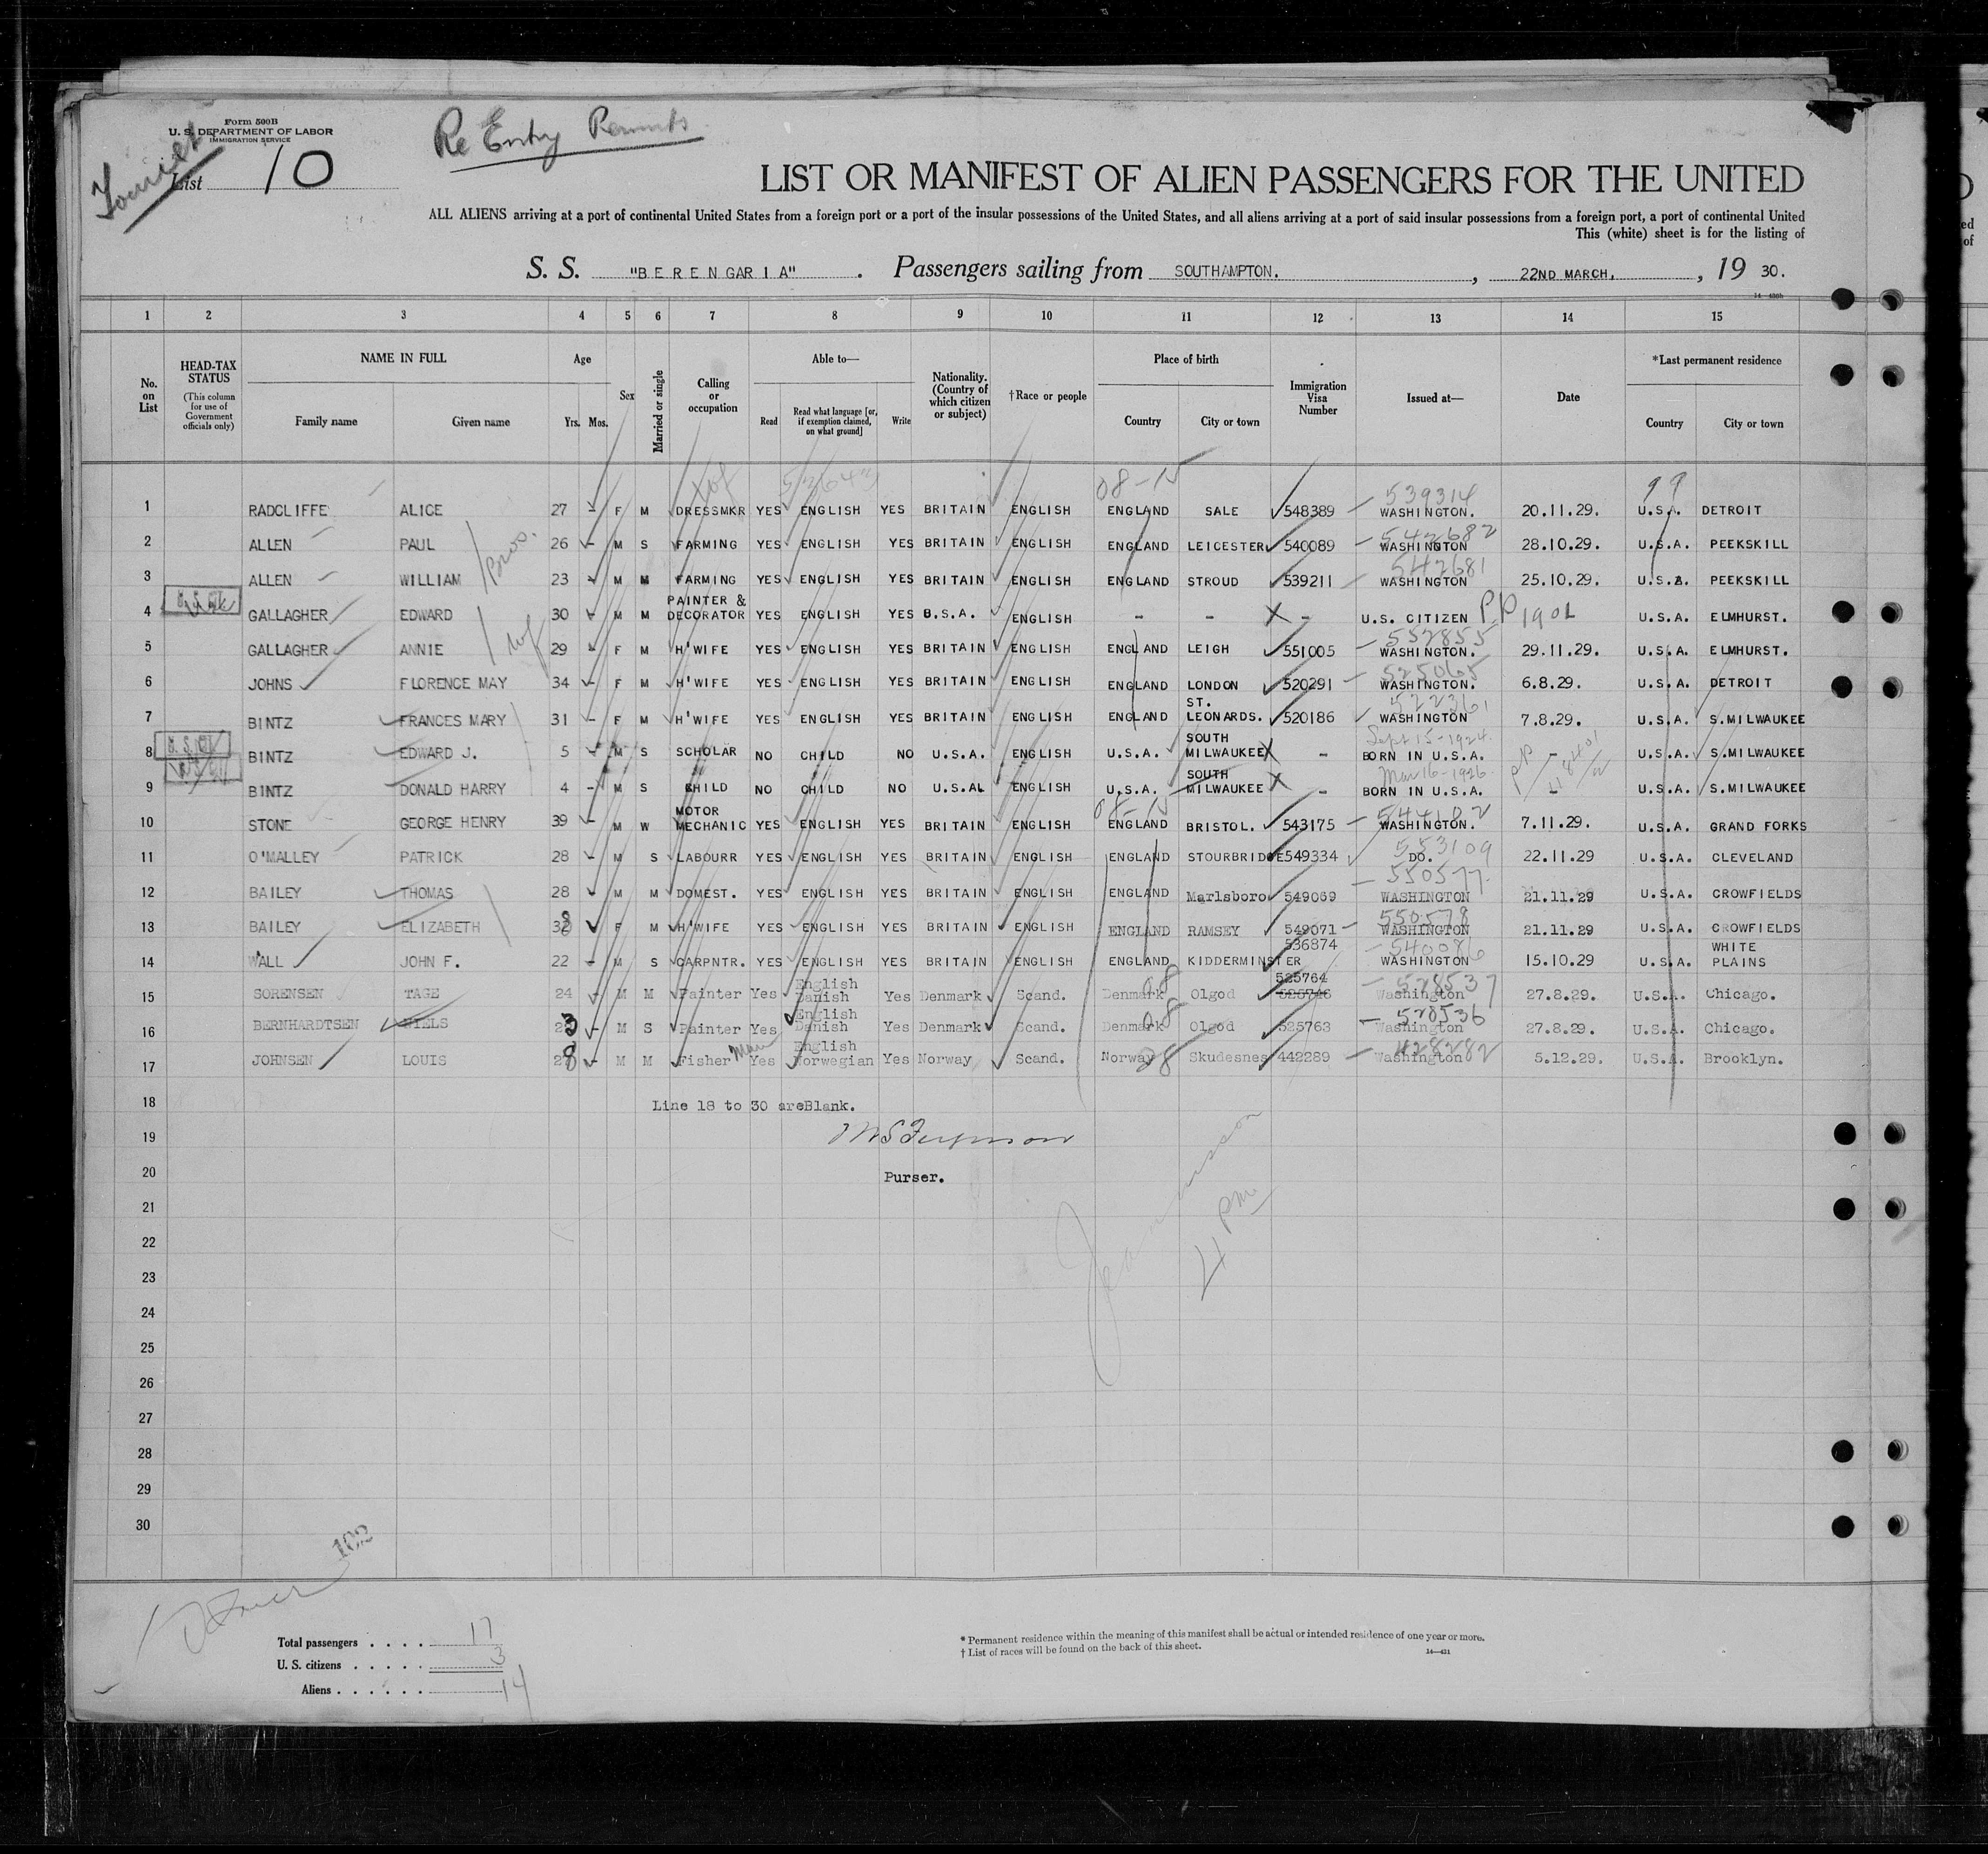 Form 500B
U. S. DEPARTMENT OF LABOR
IMMIGRATION SERVICE
Tourist
List 10
Re Entry Permits
LIST OR MANIFEST OF ALIEN PASSENGERS FOR THE UNITED
ALL ALIENS arriving at a port of continental United States from a foreign port or a port of the insular possessions of the United States, and all aliens arriving at a port of said insular possessions from a foreign port, a port of continental United
This (white) sheet is for the listing of
S. S. "BERENGARIA". Passengers sailing from SOUTHAMPTON. , 22ND MARCH, , 19 30.
1 2 3 4 5 6 7 8 9 10 11 12 13 14 15
No. on List
HEAD-TAX STATUS (This column for use of Government officials only)
NAME IN FULL Family name Given name
Age Yrs. Mos.
Sex
Married or single
Calling or occupation
Able to— Read Read what language [or, if exemption claimed, on what ground] Write
Nationality. (Country of which citizen or subject)
†Race or people
Place of birth Country City or town
Immigration Visa Number
Issued at—
Date
*Last permanent residence Country City or town
52643 08-N 99
539314
1 RADCLIFFE ALICE 27 - F M DRESSMKR YES ENGLISH YES BRITAIN ENGLISH ENGLAND SALE 548389 WASHINGTON. 20.11.29. U.S.A. DETROIT
542682
2 ALLEN PAUL bros. 26 - M S FARMING YES ENGLISH YES BRITAIN ENGLISH ENGLAND LEICESTER 540089 WASHINGTON 28.10.29. U.S.A. PEEKSKILL
542681
3 ALLEN WILLIAM 23 - M M FARMING YES ENGLISH YES BRITAIN ENGLISH ENGLAND STROUD 539211 WASHINGTON 25.10.29. U.S.A. PEEKSKILL
4 GALLAGHER EDWARD 30 - M M PAINTER & DECORATOR YES ENGLISH YES B.S.A. ENGLISH - - X - U.S. CITIZEN PP 1901 U.S.A. ELMHURST.
552855
5 GALLAGHER ANNIE wf 29 - F M H'WIFE YES ENGLISH YES BRITAIN ENGLISH ENGLAND LEIGH 551005 WASHINGTON. 29.11.29. U.S.A. ELMHURST.
525065
6 JOHNS FLORENCE MAY 34 - F M H'WIFE YES ENGLISH YES BRITAIN ENGLISH ENGLAND LONDON 520291 WASHINGTON. 6.8.29. U.S.A. DETROIT
522361
7 BINTZ FRANCES MARY 31 - F M H'WIFE YES ENGLISH YES BRITAIN ENGLISH ENGLAND ST. LEONARDS. 520186 WASHINGTON 7.8.29. U.S.A. S.MILWAUKEE
Sept 15-1924
8 BINTZ EDWARD J. 5 - M S SCHOLAR NO CHILD NO U.S.A. ENGLISH U.S.A. SOUTH MILWAUKEE X - BORN IN U.S.A. - U.S.A. S.MILWAUKEE
Mar 16-1926
9 BINTZ DONALD HARRY 4 - M S CHILD NO CHILD NO U.S.A. ENGLISH U.S.A. SOUTH MILWAUKEE X - BORN IN U.S.A. - U.S.A. S.MILWAUKEE
08-N 544102
10 STONE GEORGE HENRY 39 - M W MOTOR MECHANIC YES ENGLISH YES BRITAIN ENGLISH ENGLAND BRISTOL. 543175 WASHINGTON. 7.11.29. U.S.A. GRAND FORKS
553109
11 O'MALLEY PATRICK 28 - M S LABOURR YES ENGLISH YES BRITAIN ENGLISH ENGLAND STOURBRIDGE 549334 DO. 22.11.29 U.S.A. CLEVELAND
550577
12 BAILEY THOMAS 28 - M M DOMEST. YES ENGLISH YES BRITAIN ENGLISH ENGLAND Marlsboro 549069 WASHINGTON 21.11.29 U.S.A. CROWFIELDS
550578
13 BAILEY ELIZABETH 38 F M H'WIFE YES ENGLISH YES BRITAIN ENGLISH ENGLAND RAMSEY 549071 WASHINGTON 21.11.29 U.S.A. CROWFIELDS
540086
14 WALL JOHN F. 22 - M S CARPNTR. YES ENGLISH YES BRITAIN ENGLISH ENGLAND KIDDERMINSTER 536874 WASHINGTON 15.10.29 U.S.A. WHITE PLAINS
528537
15 SORENSEN TAGE 24 - M M Painter Yes English Danish Yes Denmark Scand. Denmark 08 Olgod 525764 526746 Washington 27.8.29. U.S.A. Chicago.
528536
16 BERNHARDTSEN NIELS 23 - M S Painter Yes English Danish Yes Denmark Scand. Denmark 08 Olgod 525763 Washington 27.8.29. U.S.A. Chicago.
428282
17 JOHNSEN LOUIS 28 - M M Fisher Man Yes English Norwegian Yes Norway Scand. Norway 28 Skudesnes 442289 Washington 5.12.29. U.S.A. Brooklyn.
18 Line 18 to 30 areBlank.
19
20 Purser.
21
4 pm
22
23
24
25
26
27
28
29
30
102
Total passengers . . . . 17
U. S. citizens . . . . . 3
Aliens . . . . . . 14
* Permanent residence within the meaning of this manifest shall be actual or intended residence of one year or more.
† List of races will be found on the back of this sheet.
14—431